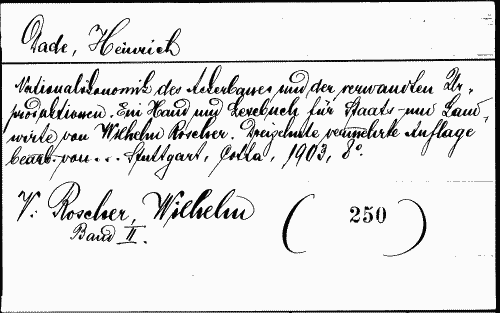 Dade, Heinrich
Nationalökonomik des Ackerbaues und der verwandten Ur-
produktionen. Ein Hand und Lesebuch für Staats- und Land-
wirte von Wilhelm Roscher. Dreizehnte vermehrte Auflage
bearb. von... Stuttgart, Cotta, 1903, 8°.
V: Roscher, Wilhelm
Band II.
(250)